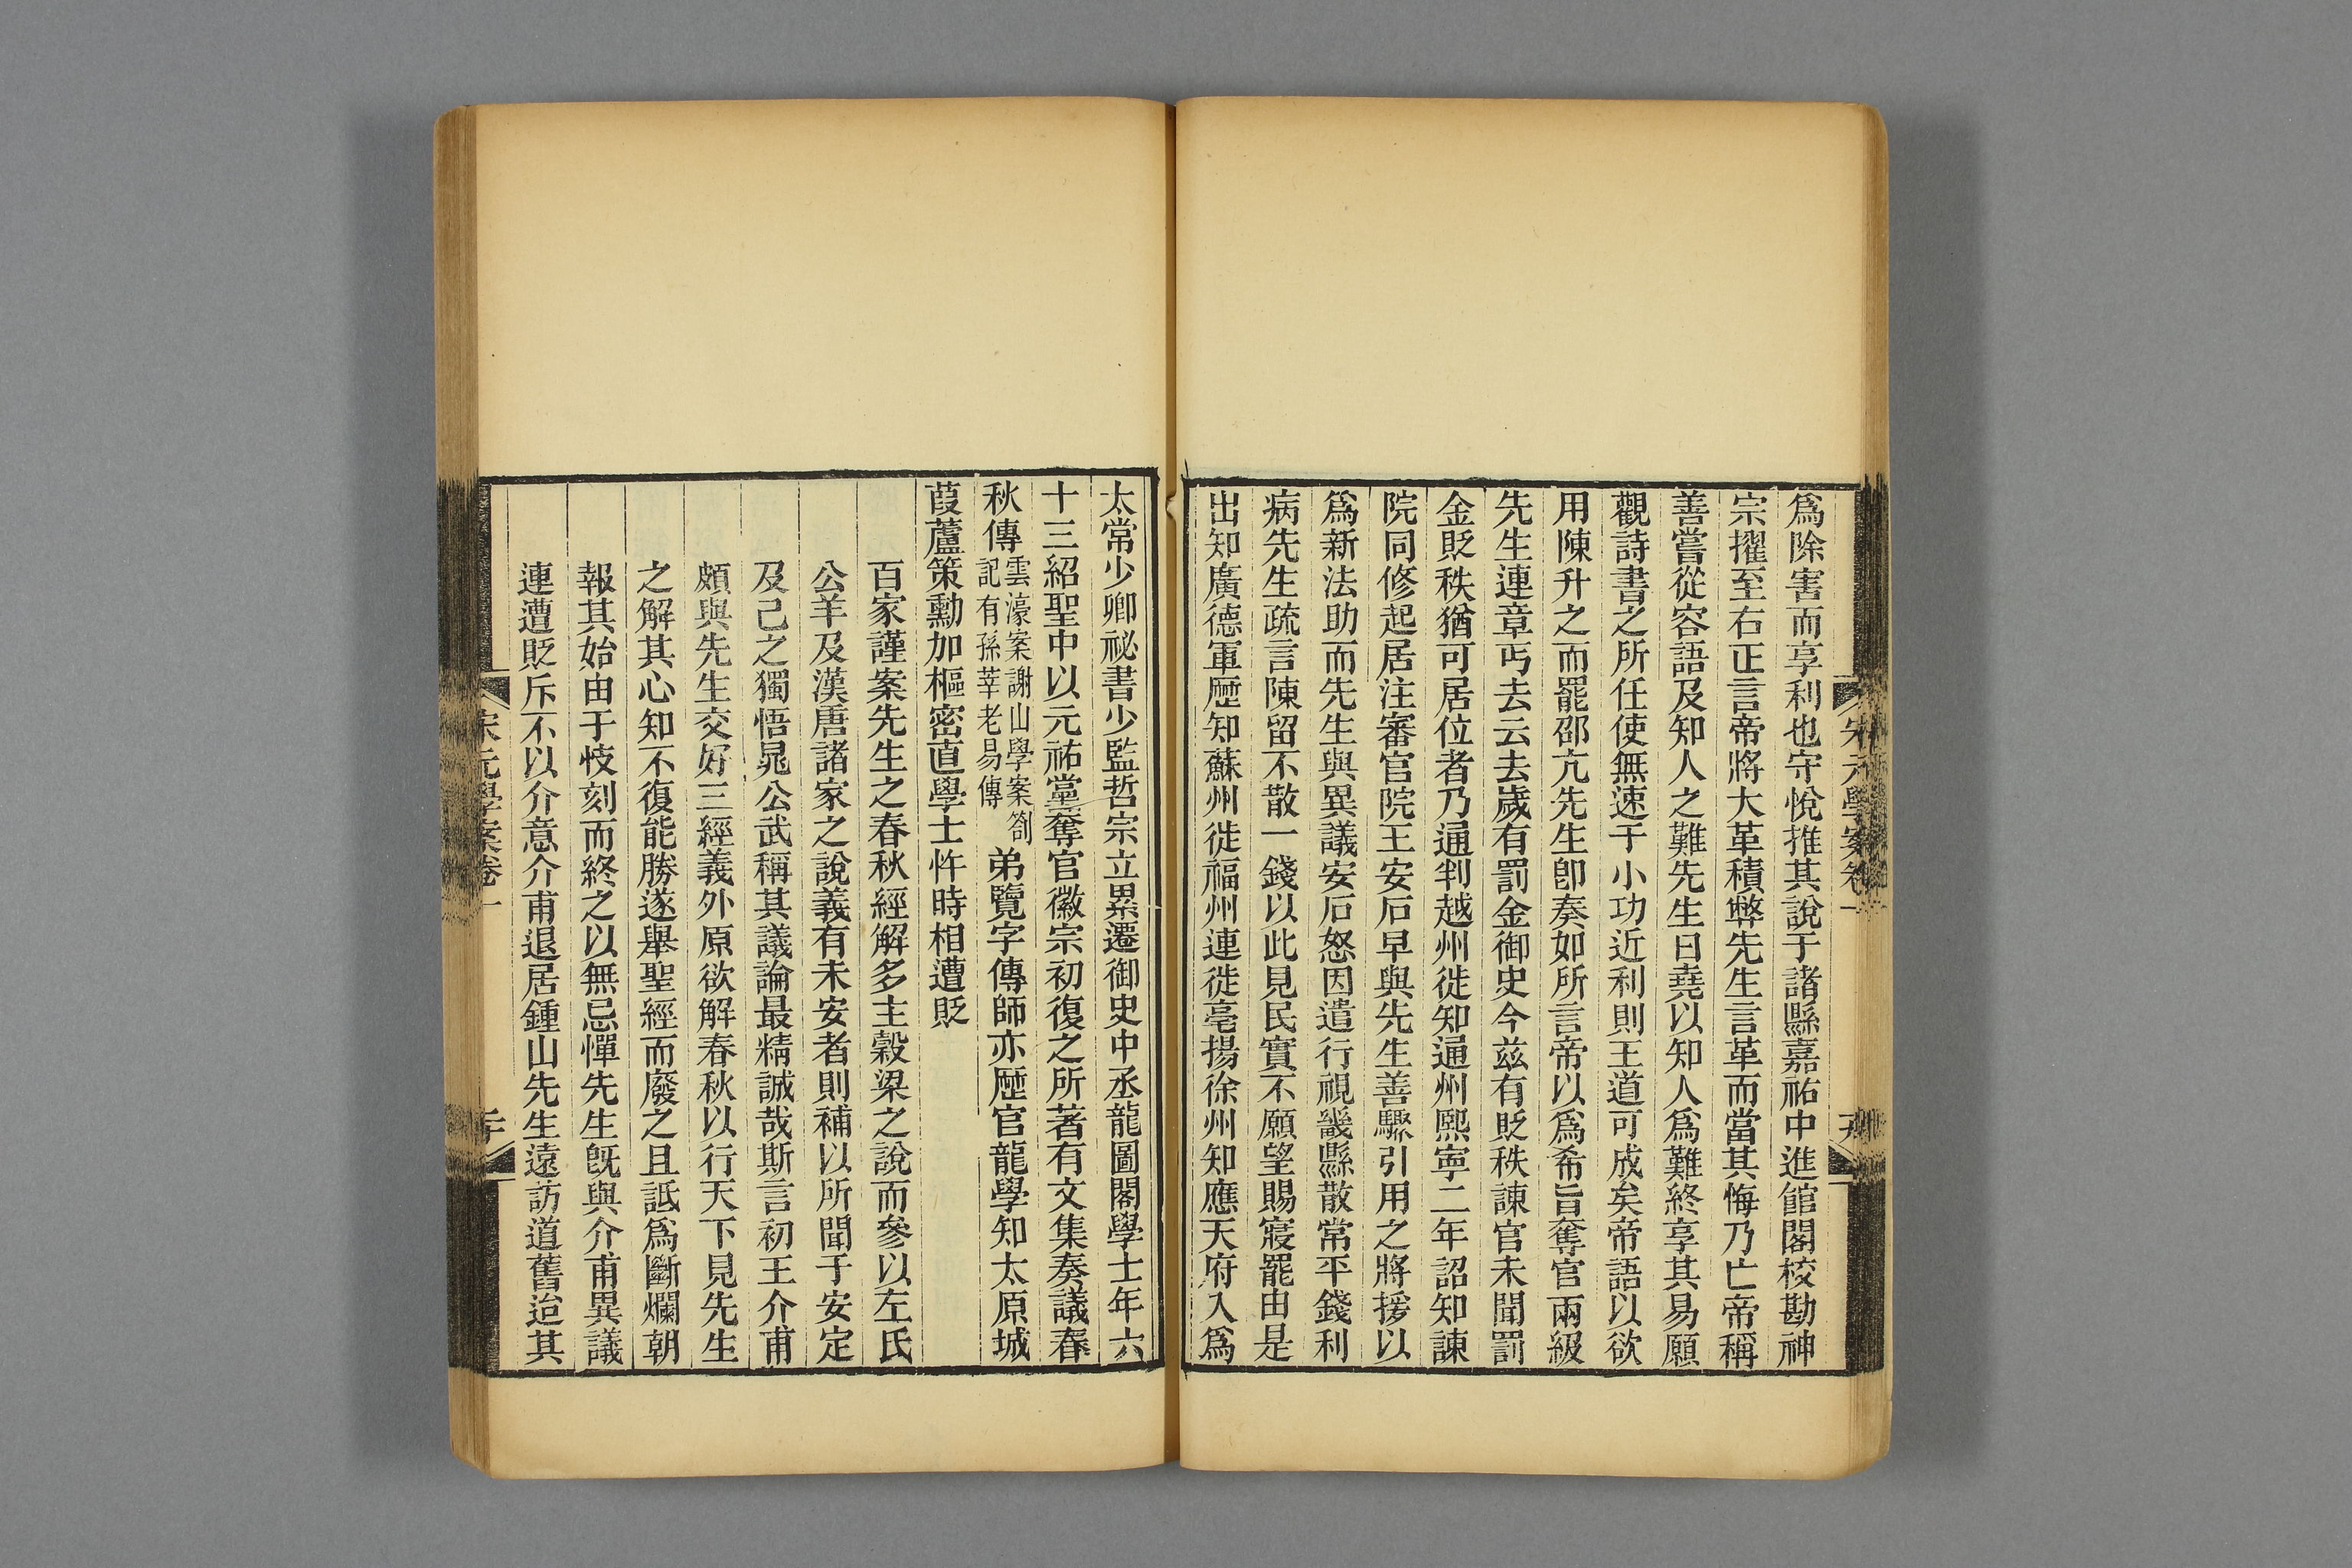 爲除害而享利也守悅推其說于諸縣嘉祐中進館閣校勘神
宗擢至右正言帝將大革積弊先生言革而當其悔乃亡帝稱
善嘗從容語及知人之難先生曰堯以知人爲難終享其易願
觀詩書之所任使無速于小功近利則王道可成矣帝語以欲
用陳升之而罷邵亢先生卽奏如所言帝以爲希旨奪官兩級
先生連章丐去云去歲有罰金御史今茲有貶秩諫官未聞罰
金貶秩猶可居位者乃通判越州徙知通州熙寧二年詔知諫
院同修起居注審官院王安石早與先生善驟引用之將援以
爲新法助而先生與異議安石怒因遣行視畿縣散常平錢利
病先生疏言陳留不散一錢以此見民實不願望賜寢罷由是
出知廣德軍歷知蘇州徙福州連徙亳揚徐州知應天府入爲
太常少卿祕書少監哲宗立累遷御史中丞龍圖閣學士年六
十三紹聖中以元祐黨奪官徽宗初復之所著有文集奏議春
秋傳雲濠案謝山學案劄記有孫莘老易傳弟覽字傳師亦歷官龍學知太原城
葭蘆策勳加樞密直學士忤時相遭貶
百家謹案先生之春秋經解多主穀梁之說而參以左氏
公羊及漢唐諸家之說義有未安者則補以所聞于安定
及己之獨悟晁公武稱其議論最精誠哉斯言初王介甫
頗與先生交好三經義外原欲解春秋以行天下見先生
之解其心知不復能勝遂舉聖經而廢之且詆爲斷爛朝
報其始由于忮刻而終之以無忌憚先生旣與介甫異議
連遭貶斥不以介意介甫退居鍾山先生遠訪道舊迨其
宋元學案卷一